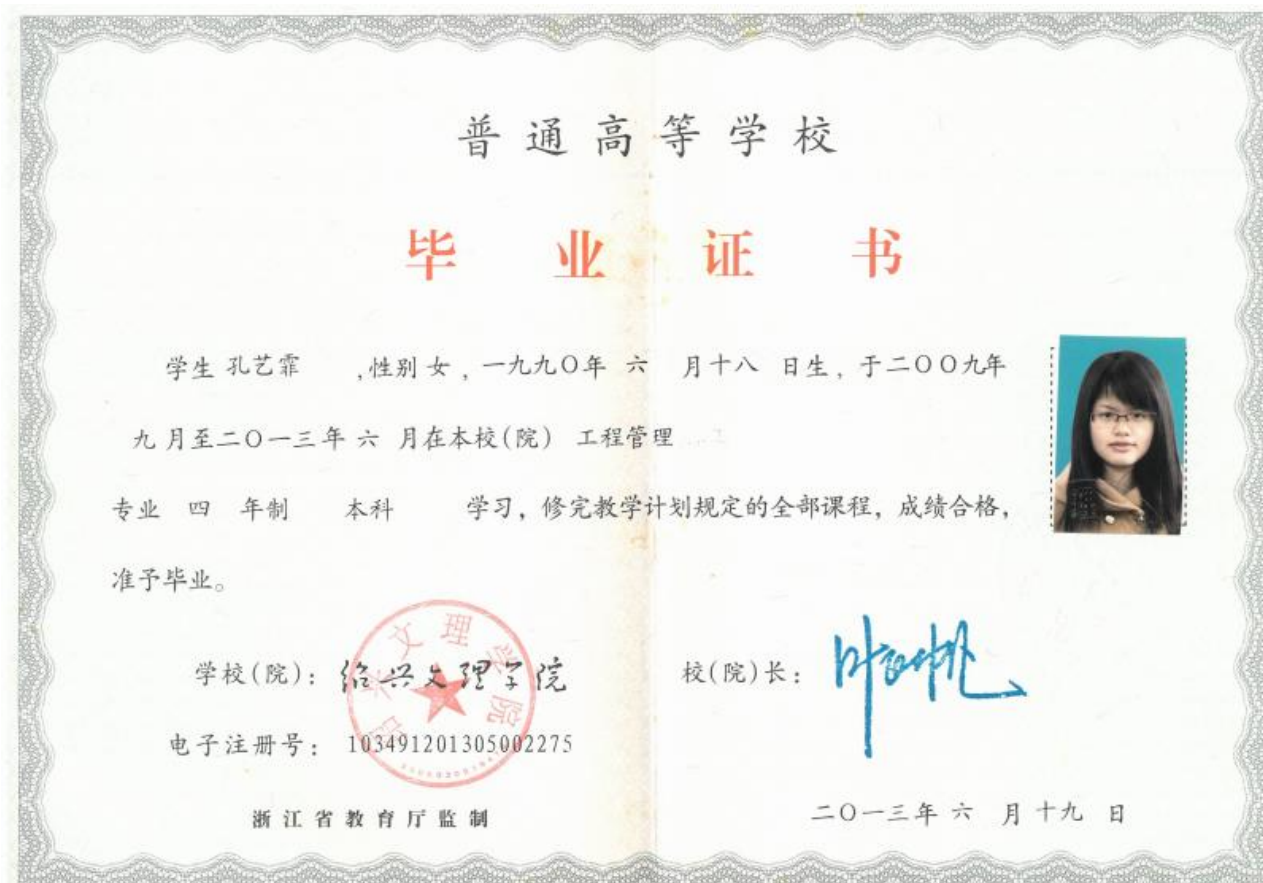 普通高等学校
毕业证书
学生 孔艺霏 ,性别 女 , 一九九〇年 六 月十八 日生, 于二〇〇九年
九 月至二〇一三年 六 月在本校(院) 工程管理
专业 四 年制 本科 学习, 修完教学计划规定的全部课程, 成绩合格,
准予毕业。
学校(院): 绍兴文理学院
校(院)长:
电子注册号: 103491201305002275
浙江省教育厅监制
二〇一三年 六 月十九 日